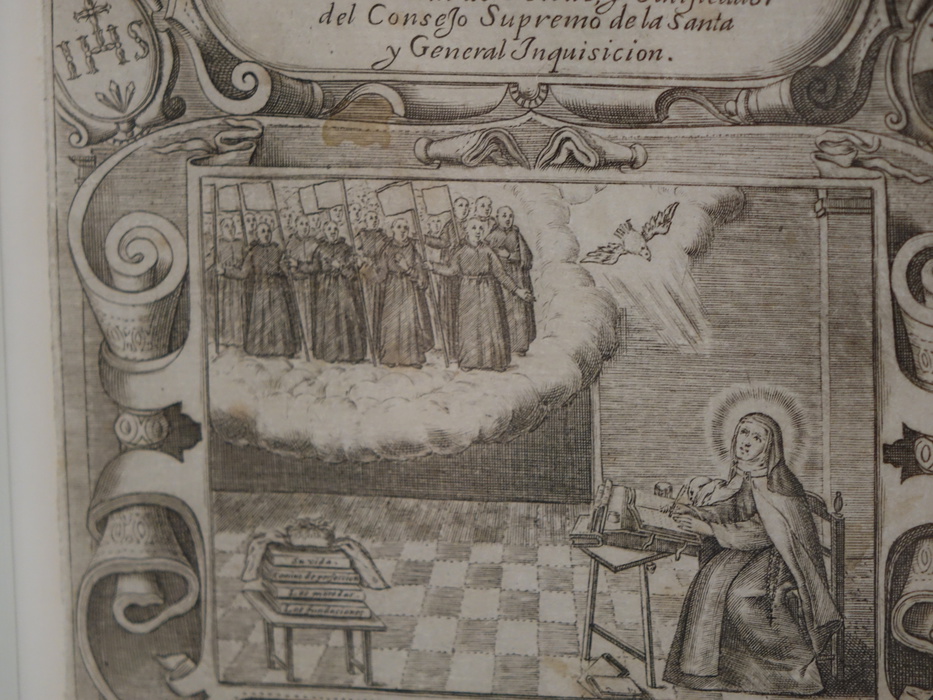 Calificador
del Consejo Supremo de la Santa
y General Inquisicion.
IHS
Su vida.
Camino de perfeccion
Las moradas
Las fundaciones